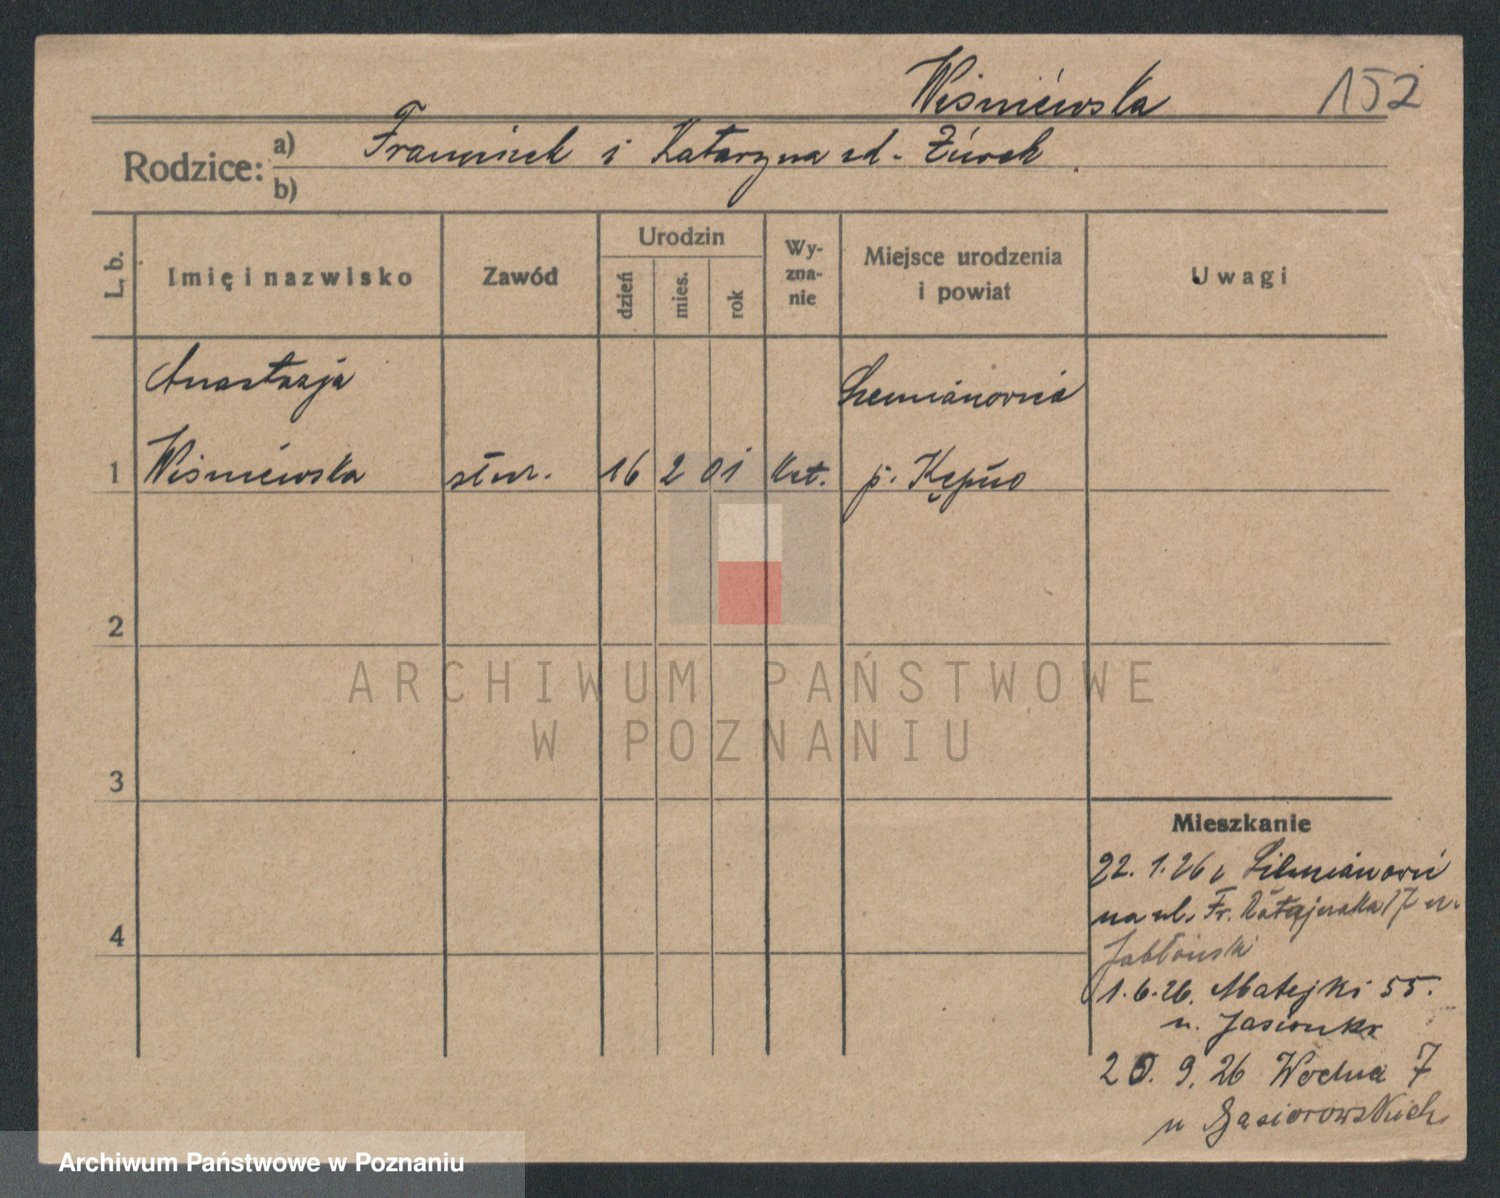 Wiśniewska 152
Rodzice: a) Franciszek i Katarzyna zd. Żurek
b)
L. b.
Imię i nazwisko
Zawód
Urodzin
dzień
mies.
rok
Wy-
zna-
nie
Miejsce urodzenia
i powiat
Uwagi
Anastazja
1 Wiśniewska służ. 16 2 01 kat. p. Kępno
2
3
4
Mieszkanie
22. 1. 26 z
na ul. Fr. Ratajczaka 17 u.
Jabłoński
1. 6. 26. Matejki 55.
u. Jasionki
20. 9. 26 Wodna 7
u Gąsiorowskich
ARCHIWUM PAŃSTWOWE
W POZNANIU
Archiwum Państwowe w Poznaniu